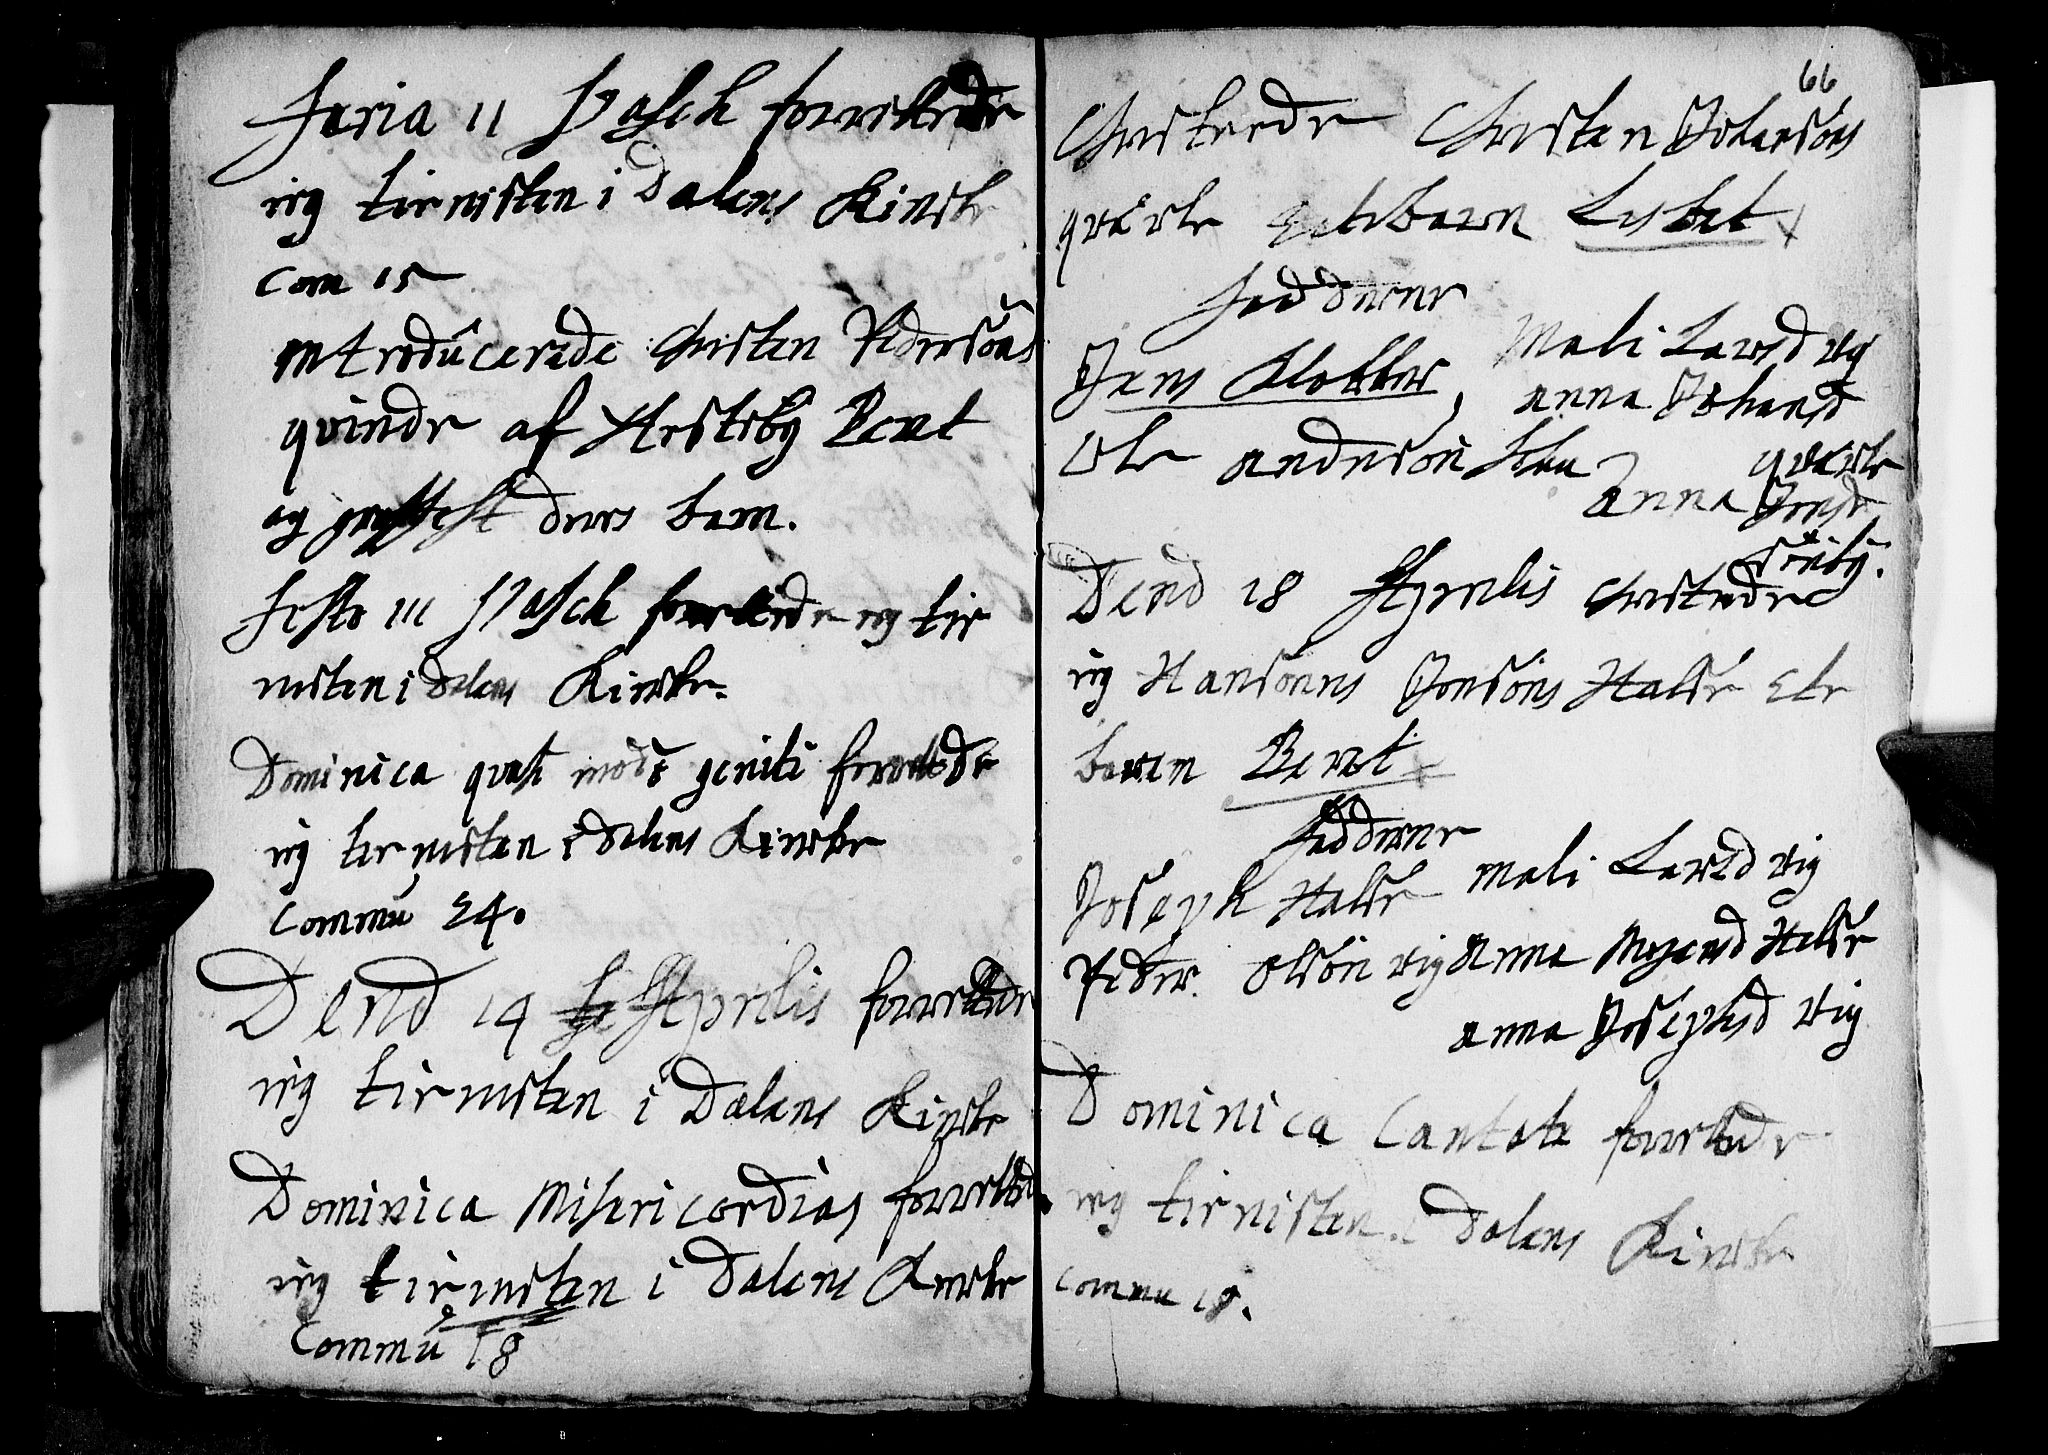 Feria 11 Pasch forrettede
ieg tienisten i Dalens Kircke
Com 15
introducerede Christen Pedersöns
qvinde af Hesteby Berit
og deris barn.
Festo 111 Pasch forrettede ieg tie
nisten i Dalens Kircke.
Dominica quasi modo geniti forrettede
ieg tienisten i Dalens Kircke
Commu 24.
Dend 19 Aprilis forrettede
ieg tienisten i Dalens Kircke
Dominica Misericordias forretted
ieg tienisten i Dalens Kircke
Commu 18
66
Christnede Christen Johansöns
qverle Echtebarn Lisbet
Fadderne
Jens Klokker, Mali Larsd vig
anna Johansd
Ole anderson qverle
Anna Jensd
Söuby.
Dend 18 Aprilis Christnede
ieg Hansones Jonsöns Halse Ele
barn Berit
Fadderne
Joseph Halse Mali Larsd vig
Peder Olsön vig Anna Mogensd Halse
anna Josephsd vig
Dominica Cantate forrettede
ieg tienisten i Dalens Kircke
Commu 18.